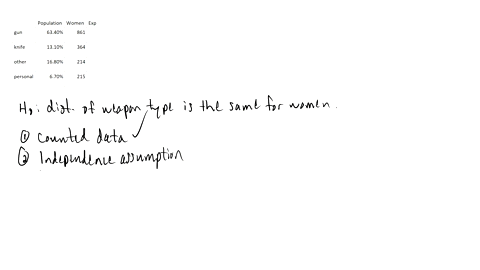 Population Women Exp
gun 63.40% 861
knife 13.10% 364
other 16.80% 214
personal 6.70% 215
H0: dist. of weapon type is the same for women.
① Counted data ✓
② Independence assumption